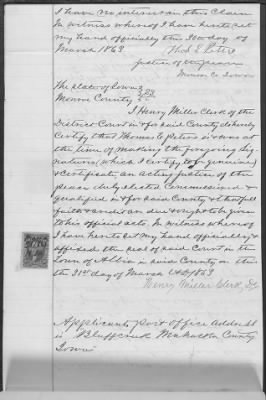 I have no interest in this Claim
In witness whereof I have hereto set
my hand officially this 30 day of
March 1863
Thos E Peters
Justice of the peace
Monroe Co Iowa
The State of Iowa
Monroe County SS
I Henry Miller Clerk of the
District Court in & for said County do hereby
Certify that Thomas E Peters is & was at
the time of making the forgoing Sig-
natures (which I certify to be genuine)
& Certificate an acting Justice of the
peace duly elected Commissioned &
qualified in & for said County & that full
faith & credit are due & ought to be given
to his official acts In witness whereof
I have hereto set my hand officially &
affixed the seal of said Court in the
Town of Albia in said County on this
the 31st day of March AD 1863
Henry Miller Clerk, DC
Applicants post office address
is Bluffcreek Mahaska County
Iowa